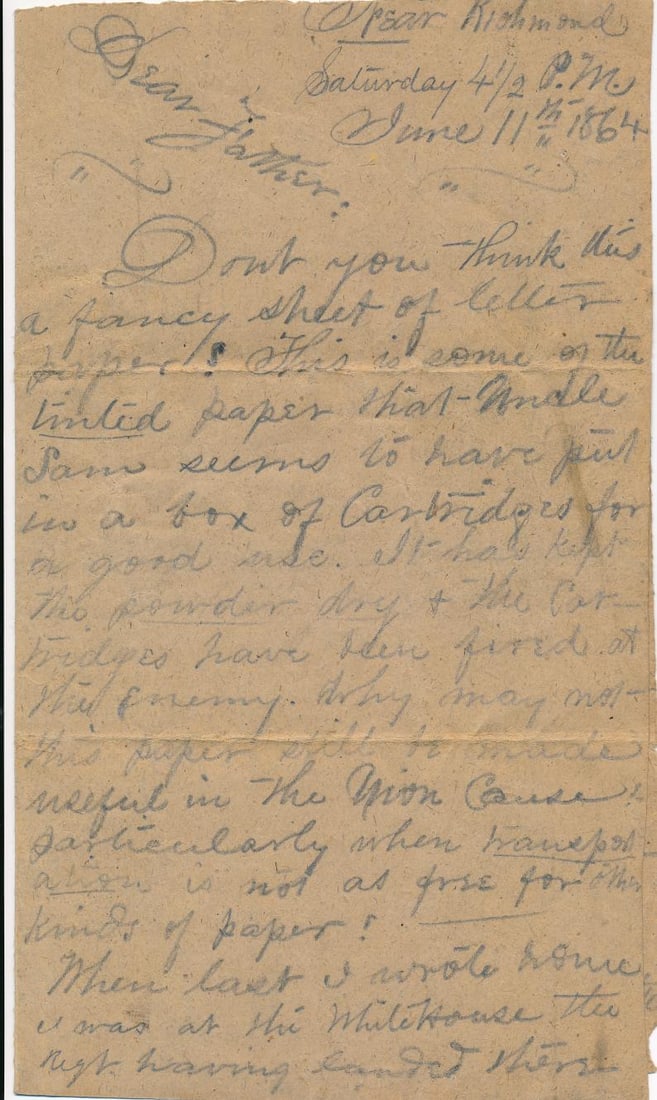 Near Richmond
Saturday 4 1/2 P.M.
June 11th 1864
Dear Father:
Dont you think this
a fancy sheet of letter
paper! This is some of the
tinted paper that Uncle
Sam seems to have put
in a box of Cartridges for
a good use. It has kept
the powder dry & the Car-
tridges have been fired at
the enemy. Why may not
this paper still be made
useful in the Union Cause!
particularly when transpor-
ation is not as free for other
kinds of paper!
When last I wrote home
I was at the White House the
Regt having landed there